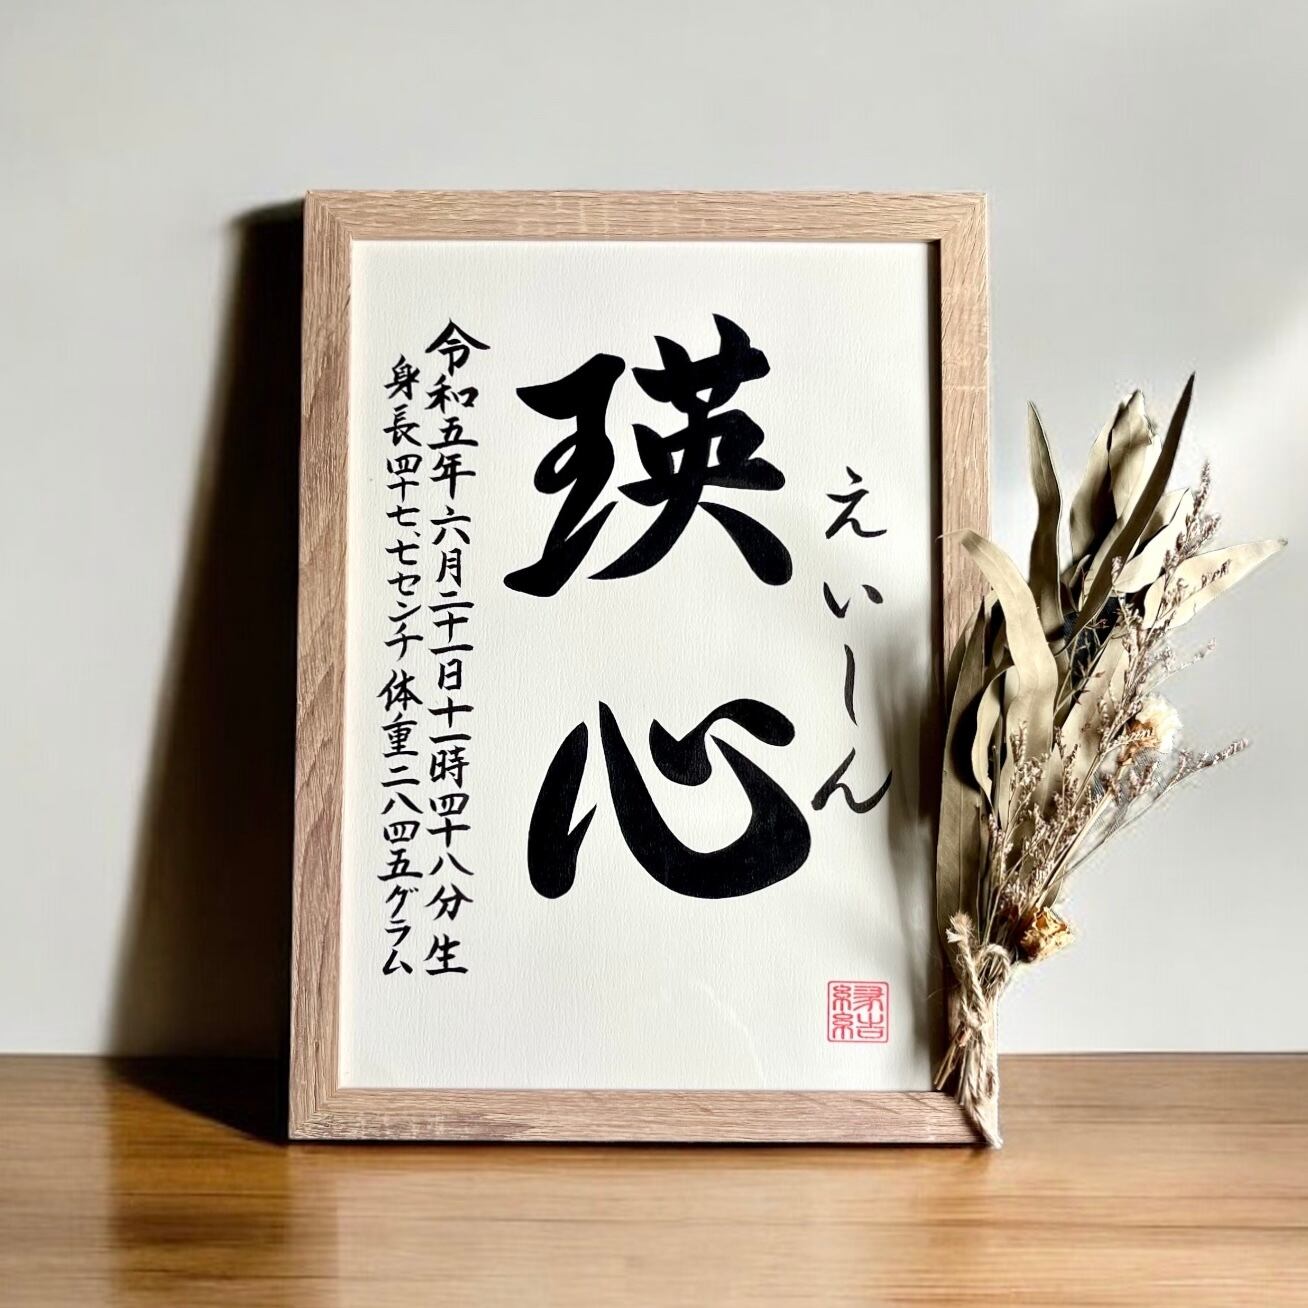 えいしん
瑛心
令和五年六月二十一日十一時四十八分生
身長四十七、七センチ体重二八四五グラム
縁結